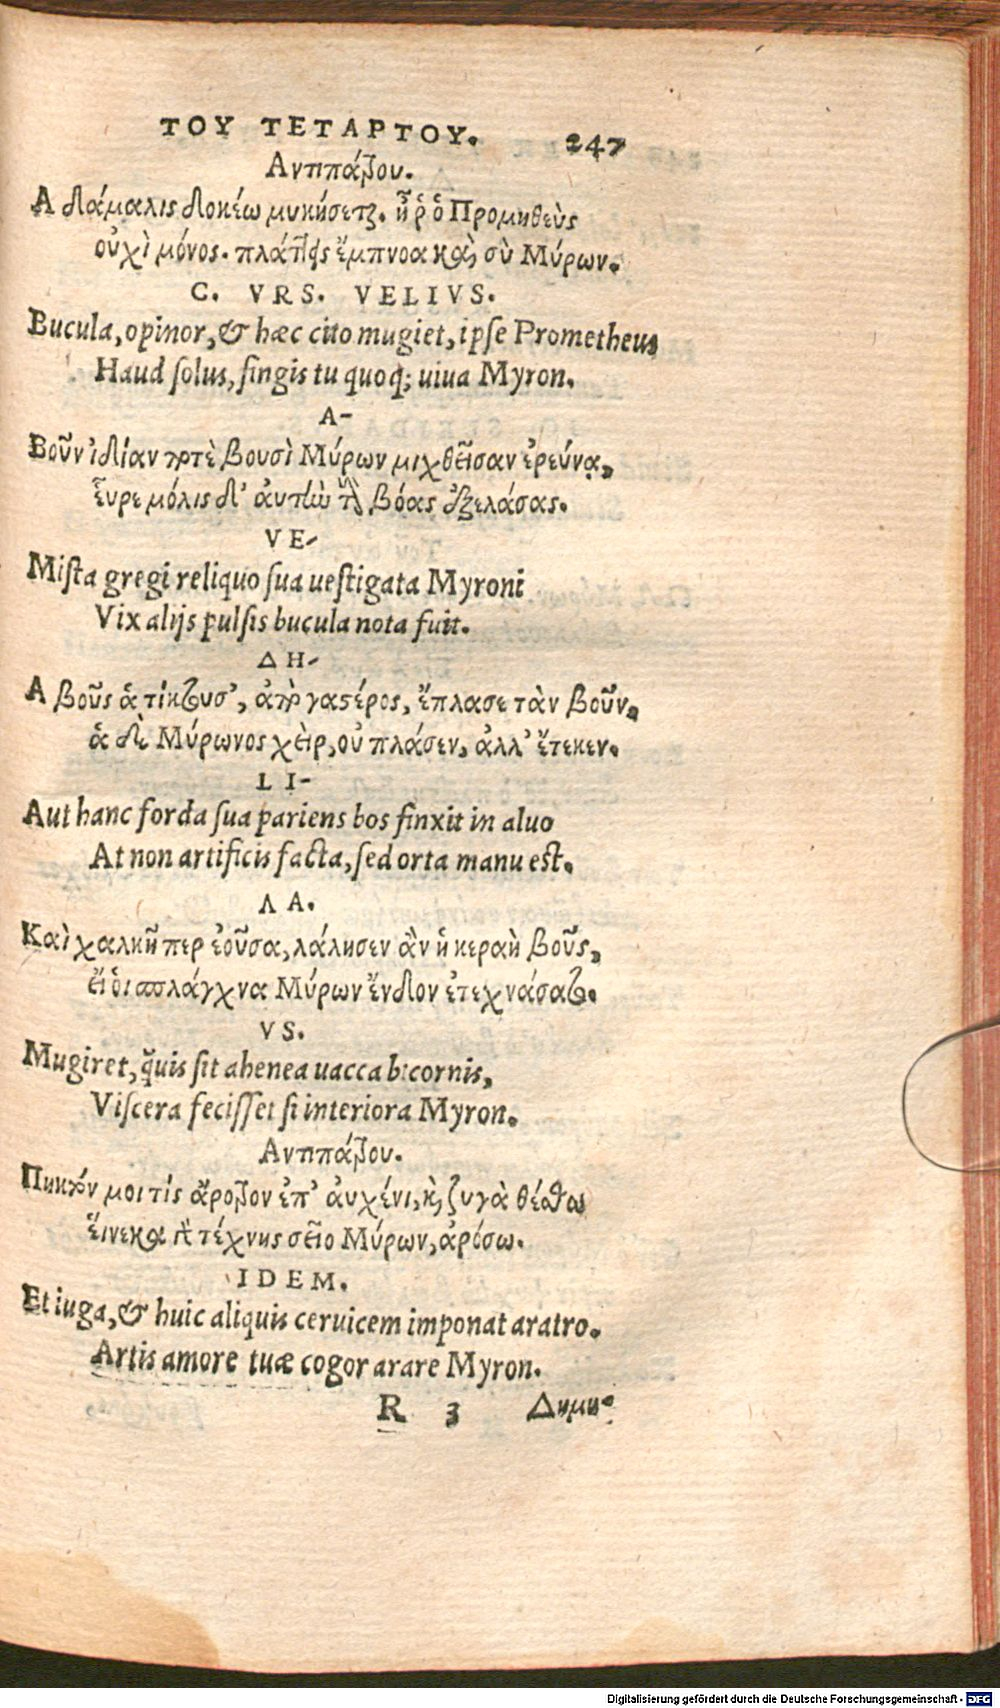 ΤΟΥ ΤΕΤΑΡΤΟΥ. 247
Αντιπάτρου.
Α δάμαλις δοκέω μυκήσεται. ἦ ῥ' ὁ Προμηθεὺς
οὐχὶ μόνος. πλάττεις ἔμπνοα καὶ σὺ Μύρων.
C. VRS. VELIVS.
Bucula, opinor, & hæc cito mugiet, ipſe Prometheus
Haud ſolus, fingis tu quoq; uiua Myron.
Α-
Βοῦν ἰδίαν ποτὲ βουσὶ Μύρων μιχθεῖσαν ἐρεύνα,
εὗρε μόλις δ' αὐτὼ τὰς βόας ἐξελάσας.
VE-
Miſta gregi reliquo ſua ueſtigata Myroni
Vix alijs pulſis bucula nota fuit.
ΔΗ-
Α βοῦς ἁ τίκτουσ', ἀπὸ γαστέρος, ἔπλασε τὰν βοῦν,
ἁ δὲ Μύρωνος χεὶρ, οὐ πλάσεν, ἀλλ' ἔτεκεν.
LI-
Aut hanc forda ſua pariens bos finxit in aluo
At non artificis facta, ſed orta manu est.
ΛΑ.
Καὶ χαλκῆ περ ἐοῦσα, λάλησεν ἂν ἡ κεραὴ βοῦς,
εἴ οἱ σπλάγχνα Μύρων ἔνδον ἐτεχνάσατο.
VS.
Mugiret, q̃uis ſit ahenea uacca bicornis,
Viſcera feciſſet ſi interiora Myron.
Αντιπάτρου.
Πηκτόν μοι τὶς ἄροτρον ἐπ' ἀυχένι, καὶ ζυγὰ θέσθω
εἵνεκα τῆς τέχνης σεῖο Μύρων, ἀρόσω.
IDEM.
Et iuga, & huic aliquis ceruicem imponat aratro.
Artis amore tuæ cogor arare Myron.
R 3 Δημη-
Digitalisierung gefördert durch die Deutsche Forschungsgemeinschaft - DFG